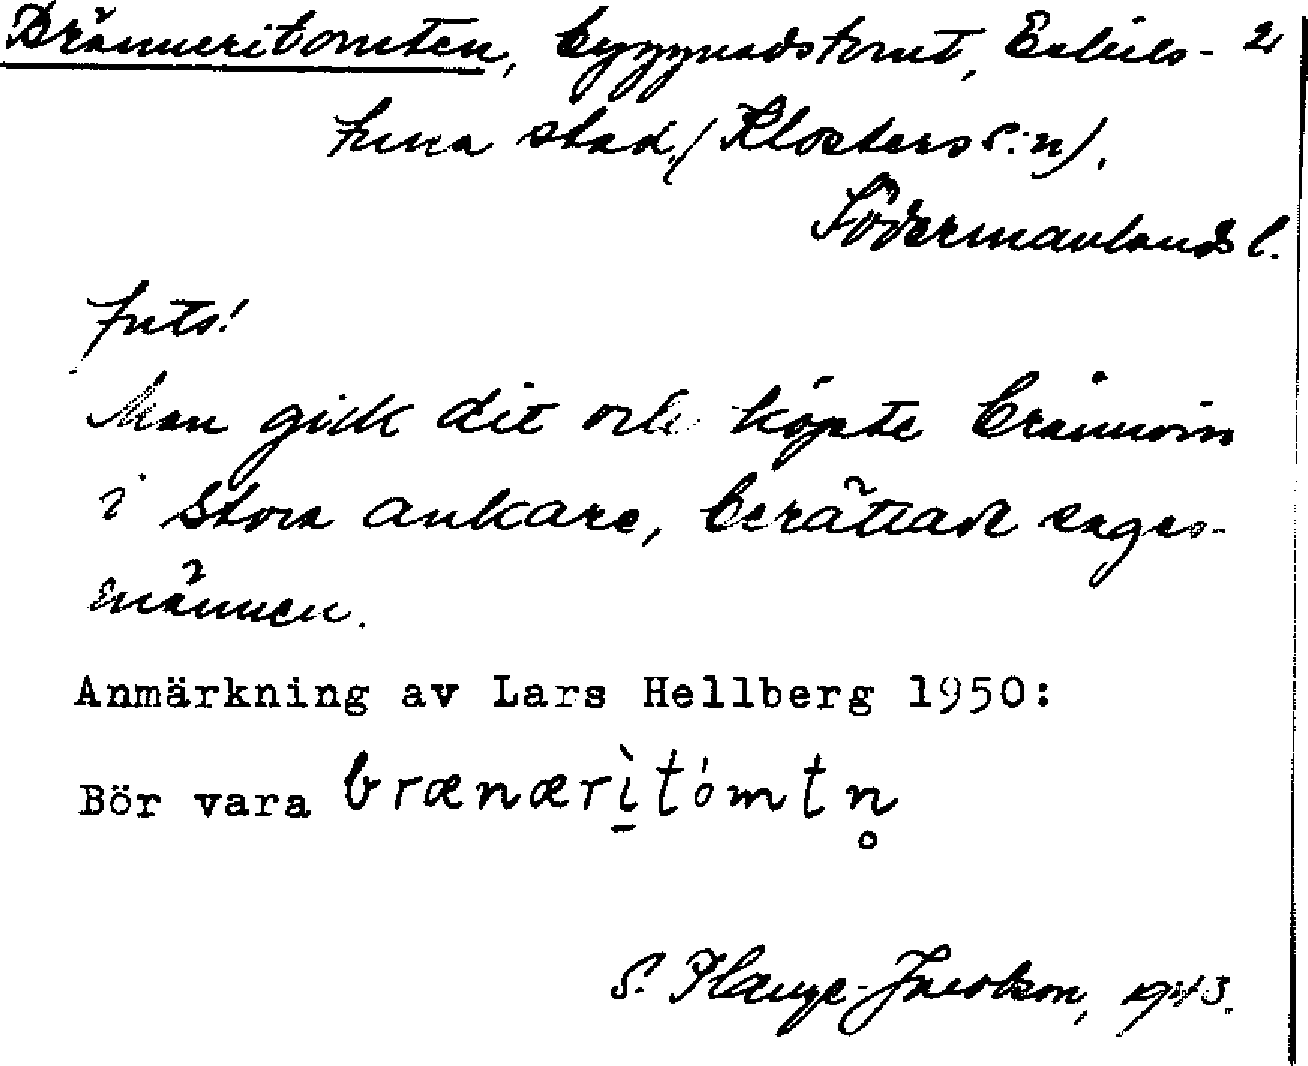 Bränneritomten, byggnadstomt, Eskils- 2
tuna stad, (Klosters s:n),
Södermanlands l.
forts!
Man gick dit och köpte brännvin
i stora ankare, berättade sages-
männen.
Anmärkning av Lars Hellberg 1950:
Bör vara brænærı̱̀tómtn̥
S. Hauge-Jacobson, 1943.